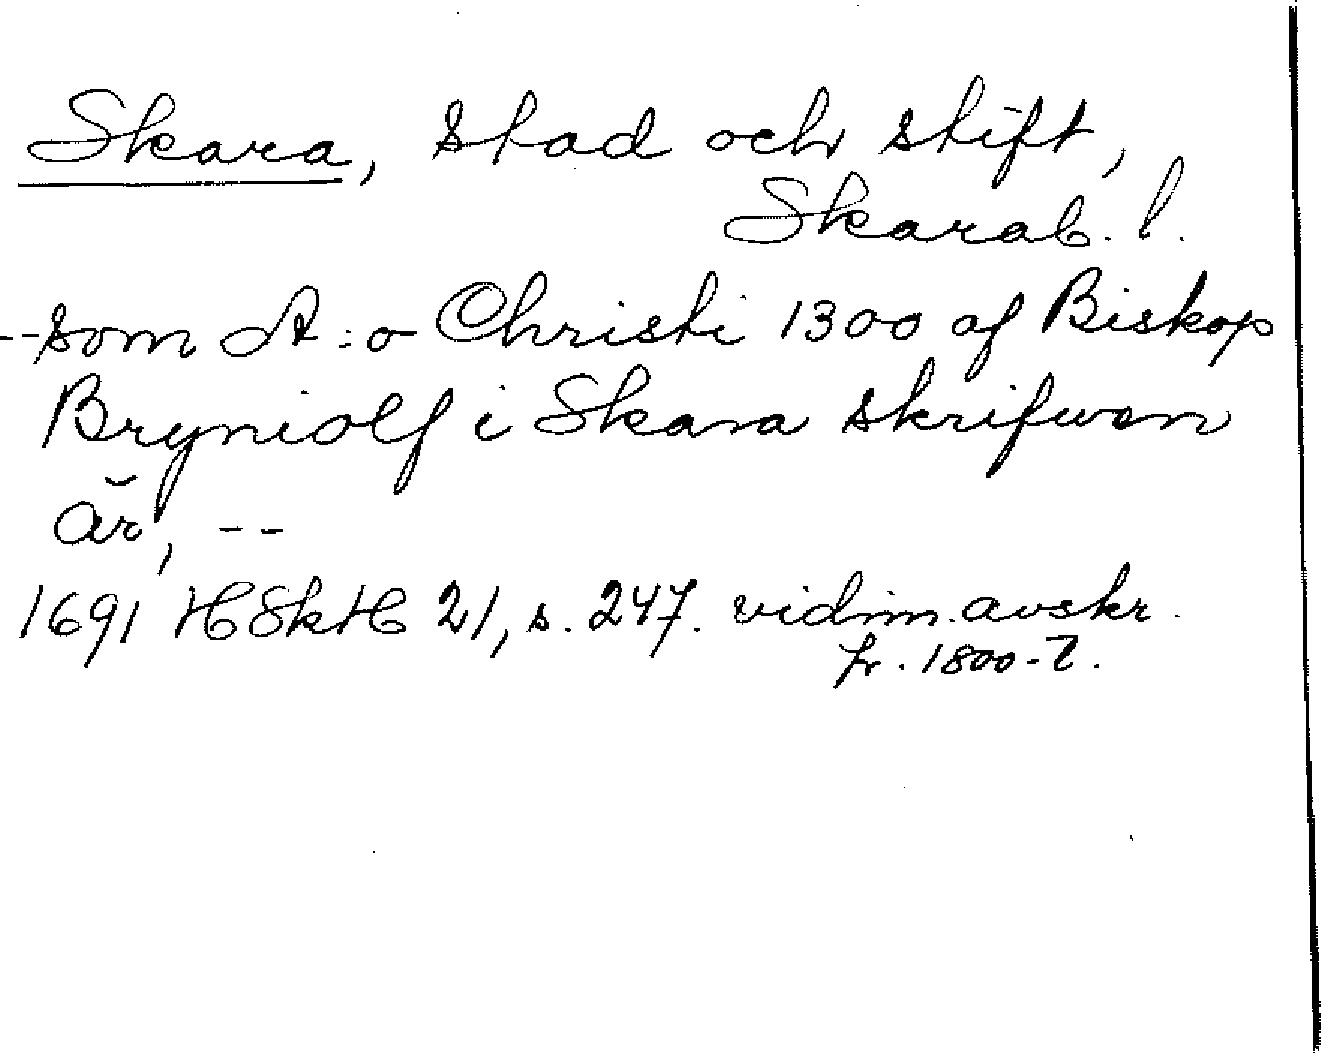 Skara, stad och stift,
Skarab. l.
--som A:o Christi 1300 af Biskop
Bryniolf i Skara skrifwen
är, --
1691 HSkH 21, s. 247. vidim. avskr.
fr. 1800-t.